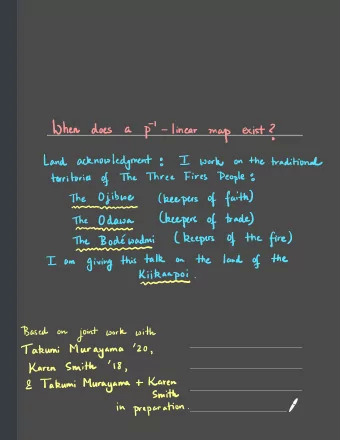 When does a p⁻¹-linear map exist?
Land acknowledgment : I work on the traditional
territories of The Three Fires People :
The Ojibwe (keepers of faith)
The Odawa (keepers of trade)
The Bodéwadmi (keepers of the fire)
I am giving this talk on the land of the
Kiikaapoi.
Based on joint work with
Takumi Murayama '20,
Karen Smith '18,
& Takumi Murayama + Karen
Smith
in preparation.